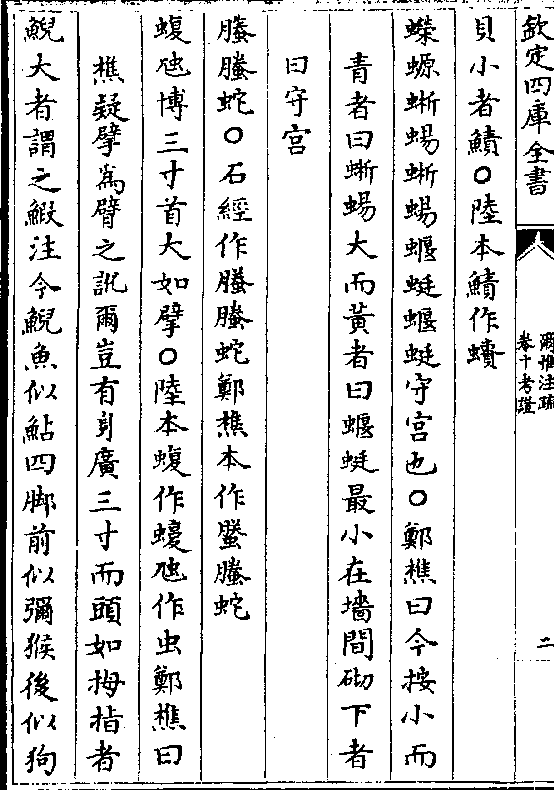 欽定四庫全書
爾雅注疏
卷十考證
二
貝小者鰿○陸本鰿作𧐐
蠑螈蜥蜴蜥蜴蝘蜓蝘蜓守宫也○鄭樵曰今按小而
青者曰蜥蜴大而黃者曰蝘蜓最小在墻間砌下者
曰守宫
螣螣蛇○石經作螣螣蛇鄭樵本作螣螣蛇
蝮虺博三寸首大如擘○陸本蝮作蝮虺作虫鄭樵曰
樵疑擘為臂之訛爾豈有身廣三寸而頭如拇指者
鯢大者謂之鰕注今鯢魚似鮎四脚前似獼猴後似狗